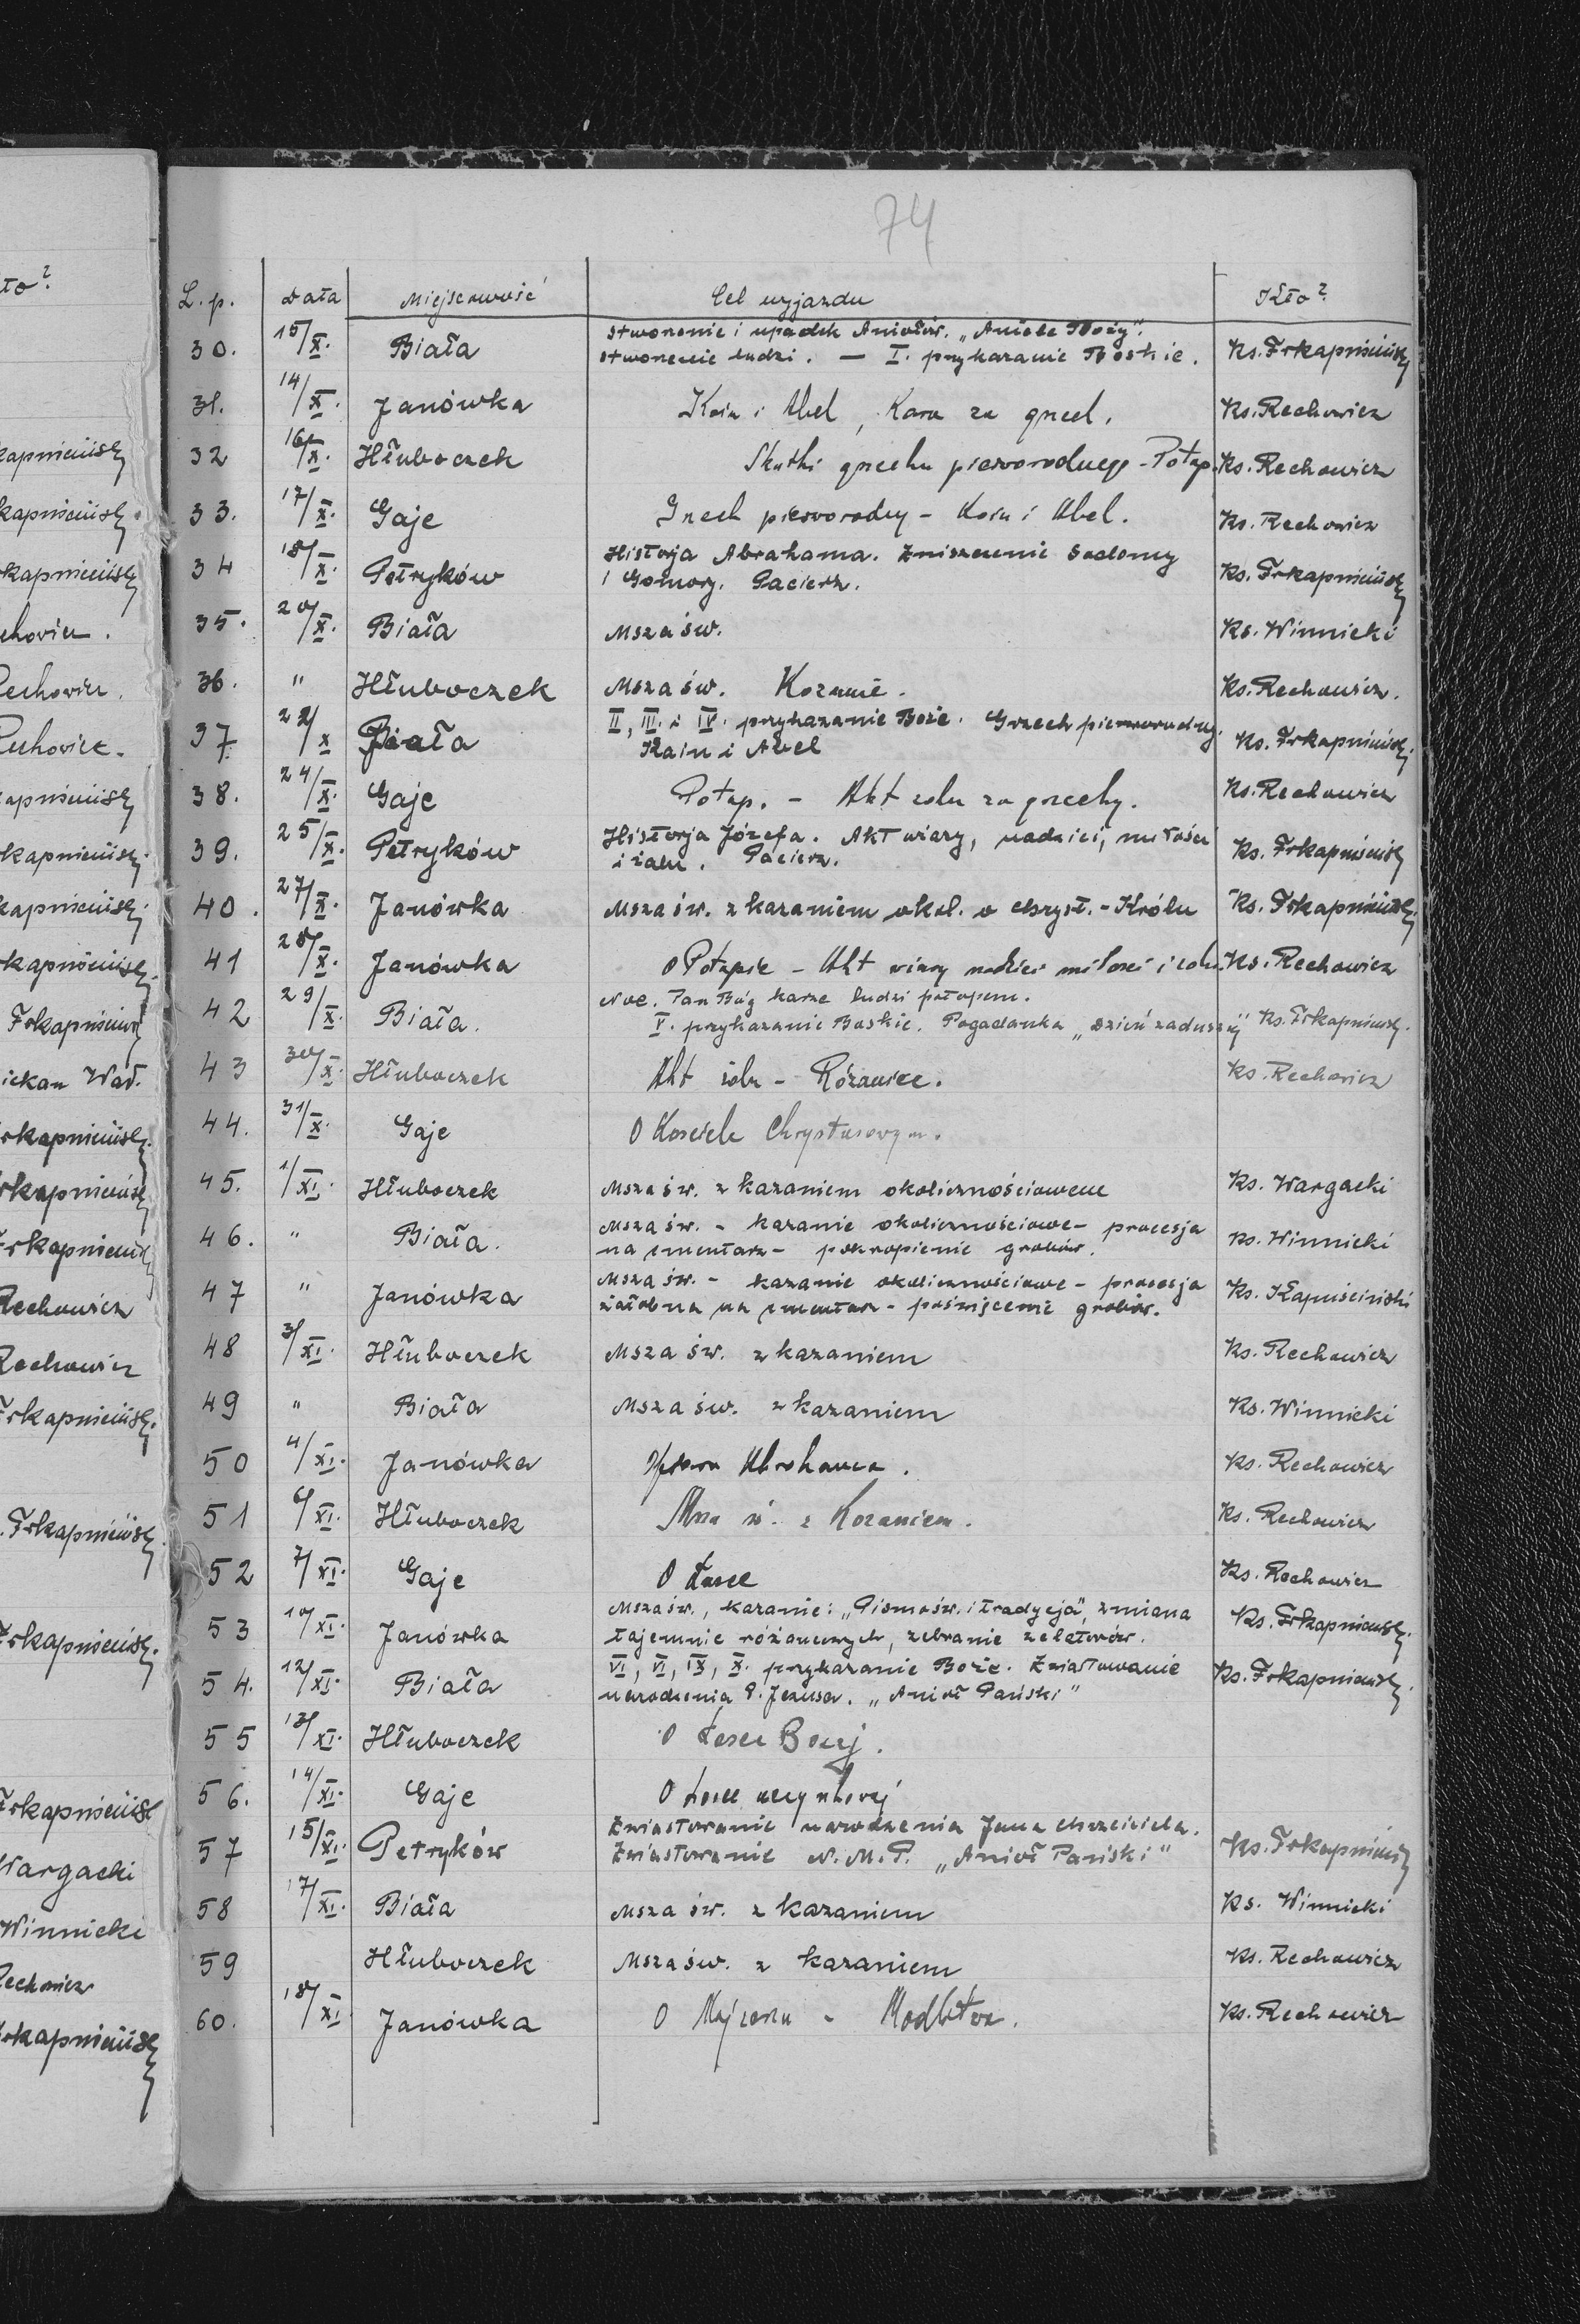 74
L. p. Data Miejscowość Cel wyjazdu Kto?
30. 15/X. Biała Stworzenie i upadek Aniołów. „Aniele Boży".
Stworzenie ludzi. — I. przykazanie Boskie. Ks. Frkapniciński
31. 14/X. Janówka Kain i Abel, Kara za grzech. Ks. Rechowicz
32 16/X. Hłuboczek Skutki grzechu pierworodnego - Potop. Ks. Rechowicz
33. 17/X. Gaje Grzech pierworodny - Kain i Abel. Ks. Rechowicz
34 18/X. Petryków Historja Abrahama. Zniszczenie Sodomy
i Gomory. Pacierz. Ks.
35. 20/X. Biała Msza św. Ks. Winnicki
36. " Hłuboczek Msza św. Kazanie. Ks. Rechowicz.
37. 22/X Biała II, III. i IV. przykazanie Boże. Grzech pierworodny.
Kain i Abel Ks.
38. 24/X. Gaje Potop. - Akt żalu za grzechy. Ks. Rechowicz
39. 25/X. Petryków Historja Józefa. Akt wiary, nadziei, miłości
i żalu. Pacierz. Ks.
40. 27/X. Janówka Msza św. z kazaniem okol. o Chryst. - Królu Ks.
41 28/X. Janówka O Potopie - Akt wiary nadziei miłości i żalu Ks. Rechowicz
42 29/X. Biała. Noe. Pan Bóg karze ludzi potopem.
V. przykazanie Boskie. Pogadanka „Dzień zaduszny" Ks.
43 30/X. Hłuboczek Akt żalu - Różaniec. Ks. Rechowicz
44. 31/X. Gaje O Kościele Chrystusowym.
45. 1/XI. Hłuboczek Msza św. z kazaniem okolicznościowem Ks. Wargacki
46. " Biała. Msza św. - kazanie okolicznościowe - procesja
na cmentarz - pokropienie grobów. Ks. Winnicki
47 " Janówka Msza św. - kazanie okolicznościowe - procesja
żałobna na cmentarz - poświęcenie grobów. Ks. Kapuściński
48 3/XI. Hłuboczek Msza św. z kazaniem Ks. Rechowicz
49 " Biała Msza św. z kazaniem Ks. Winnicki
50 4/XI. Janówka Ofiara Abrahama. Ks. Rechowicz
51 6/XI. Hłuboczek Msza św. z Kazaniem. Ks. Rechowicz
52 7/XI. Gaje O Łasce Ks. Rechowicz
53 10/XI. Janówka Msza św., kazanie: „Pismo św. i tradycja", zmiana
tajemnic różańcowych, zebranie zelatorów. Ks.
54. 12/XI. Biała VI, VI, IX, X. przykazanie Boże. Zwiastowanie
narodzenia P. Jezusa. „Anioł Pański" Ks.
55 13/XI. Hłuboczek O Łasce Bożej.
56. 14/XI. Gaje O Łasce uczynkowej
57 15/XI. Petryków Zwiastowanie narodzenia Jana Chrzciciela.
Zwiastowanie N. M. P. „Anioł Pański" Ks.
58 17/XI. Biała Msza św. z kazaniem Ks. Winnicki
59 Hłuboczek Msza św. z kazaniem Ks. Rechowicz
60. 18/XI Janówka O Mojżeszu - Modlitwa. Ks. Rechowicz